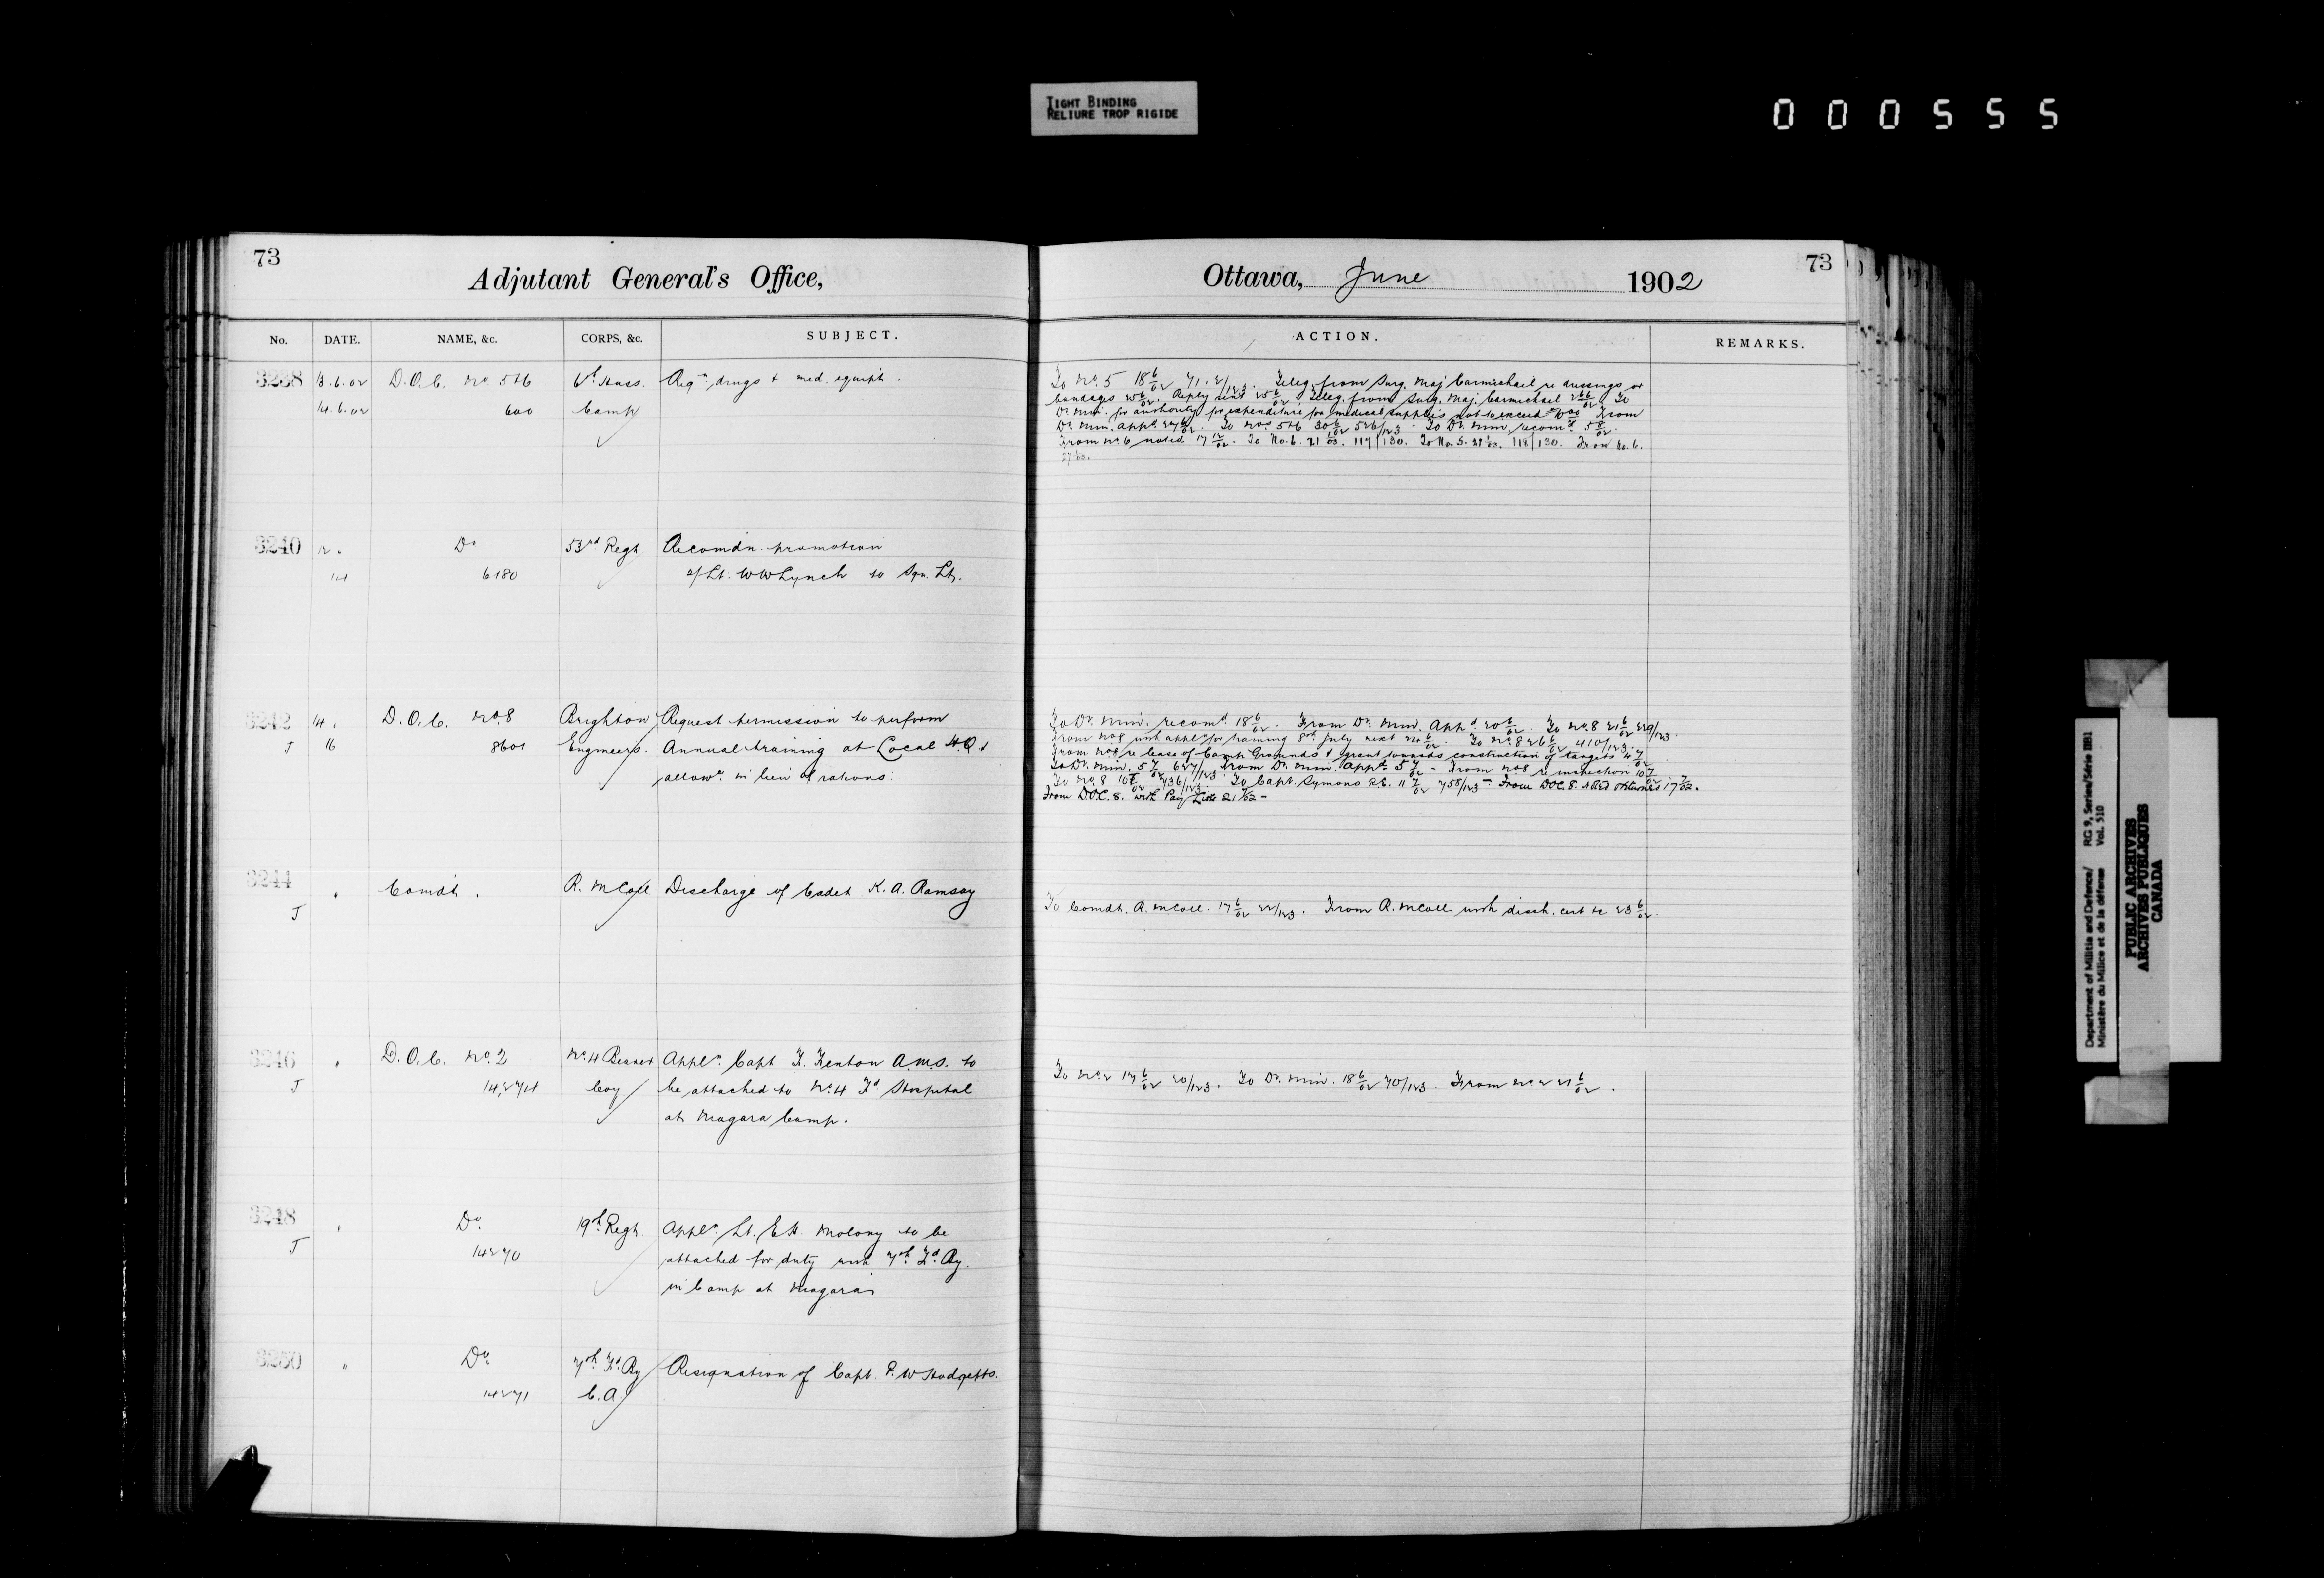 TIGHT BINDING
RELIURE TROP RIGIDE
000555
73
Adjutant General's Office,
No. DATE. NAME, &c. CORPS, &c. SUBJECT.
3238 13.6.02 D.O.C. No 5&6 6th Huss. Reqn drugs & med. equipt.
14.6.02 600 Camp
3240 12. Do 53rd Regt Recomdn. promotion
14 6180 2/Lt. W W Lynch to Sqn. Lt.
3242 14. D.O.C. No. 8 Brighton Request permission to perform
J 16 8601 Engineers. Annual training at Local H.Q &
allowe. in lieu of rations.
3244 " Comdt. R. M Coll Discharge of Cadet K. A. Ramsay
J
3246 " D.O.C. No. 2 No. 4 Bearer Appln. Capt F. Fenton A.M.S. to
J 14,274 Coy be attached to No. 4 Fd Hospital
at Niagara Camp.
3248 " Do. 19th Regt. Appln. Lt. E H. Molony to be
J 14270 attached for duty with 7th Fd. By.
in Camp at Niagara
3250 " Do. 7th Fd. By Resignation of Capt. P. W Hodgetts.
14271 C.A.
73
Ottawa, June 1902
ACTION. REMARKS.
To No. 5 18 6/02 71.2/123. Teleg. from Surg. Maj Carmichael re dressings or
bandages 25 6/02. Reply sent 25 6/02 Teleg. from Surg. Maj. Carmichael 26 6/02 To
Dr. Min. for authority for expenditure for medical supplies not to exceed From
Dr. Min. appd. 27 6/02. To Nos 5&6 30 6/02 526/123. To Dr. Min. recomd. 5 8/02.
From No. 6 noted 17 12/02 - To No. 6. 21 1/03. 117/130. To No. 5. 21 1/03. 118/130. From No. 6.
To Dr. Min. recomd. 18 6/02. From Dr. Min. Appd 20 6/02. To No. 8 21 6/02 220/123.
From No 8 with appl. for training 8th July next 24 6/02. To No. 8 26 6/02 410/123.
From No 8 re lease of Camp Grounds & grant towards construction of targets 4 7/02.
To Dr. Min. 5 7/02 627/123. From Dr. Min. Appd. 5 7/02 - From No 8 re inspection 10 7/02
To No. 8 10 7/02 736/123. To Capt. Symons R.E. 11 7/02 758/123 - From DOC. 8. 17 7/02.
From D.O.C. 8. with Pay Lists 21 7/02 -
To Comdt. R. M Coll. 17 6/02 22/123. From R. M Coll with disch. cert &c 23 6/02.
To No. 2 17 6/02 20/123. To Dr. Min. 18 6/02 70/123. From No 2 21 6/02.
Department of Militia and Defence/ RG 9, Series/Série IIB1
Ministère du Milice et de la défense Vol. 510
PUBLIC ARCHIVES
ARCHIVES PUBLIQUES
CANADA